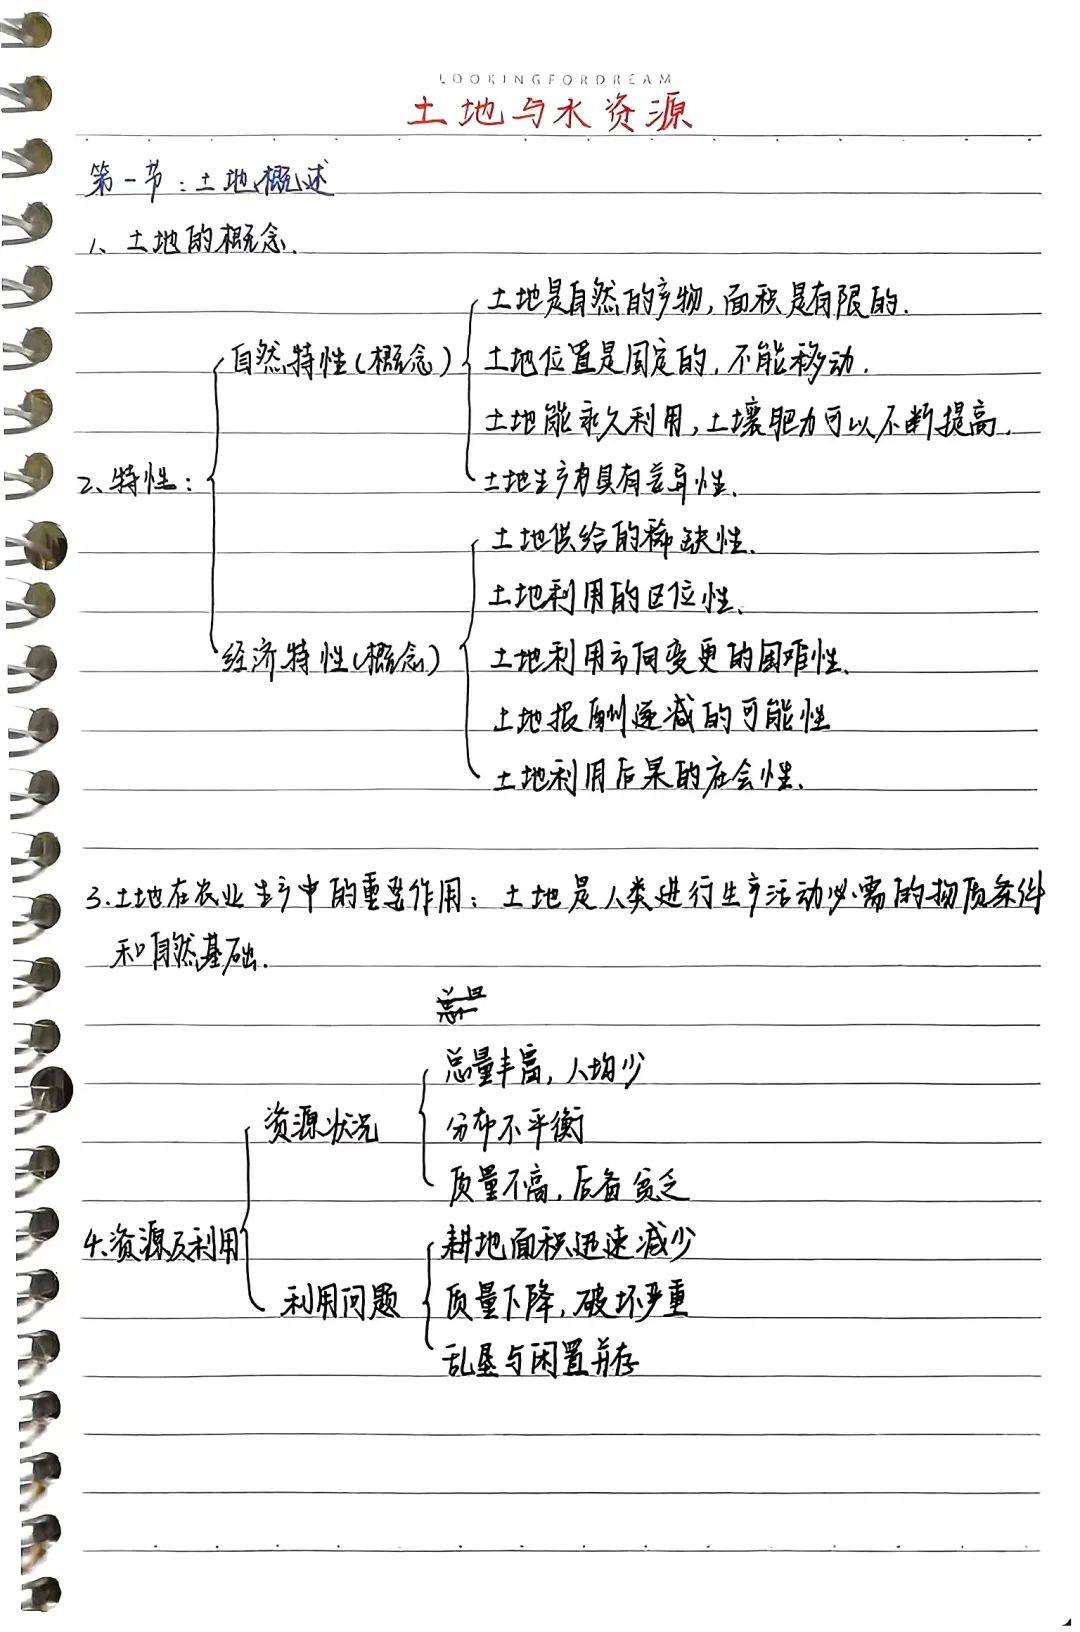 LOOKINGFORDREAM
土地与水资源
第一节：土地概述
1、土地的概念.
土地是自然的产物，面积是有限的.
自然特性(概念)
土地位置是固定的，不能移动.
土地能永久利用，土壤肥力可以不断提高.
2、特性：
土地生产力具有差异性.
土地供给的稀缺性.
土地利用的区位性.
经济特性(概念)
土地利用方向变更的困难性.
土地报酬递减的可能性
土地利用后果的社会性.
3.土地在农业生产中的重要作用：土地是人类进行生产活动必需的物质条件
和自然基础.
总量丰富，人均少
资源状况
分布不平衡
质量不高，后备贫乏
4.资源及利用
耕地面积迅速减少
利用问题
质量下降，破坏严重
乱垦与闲置并存